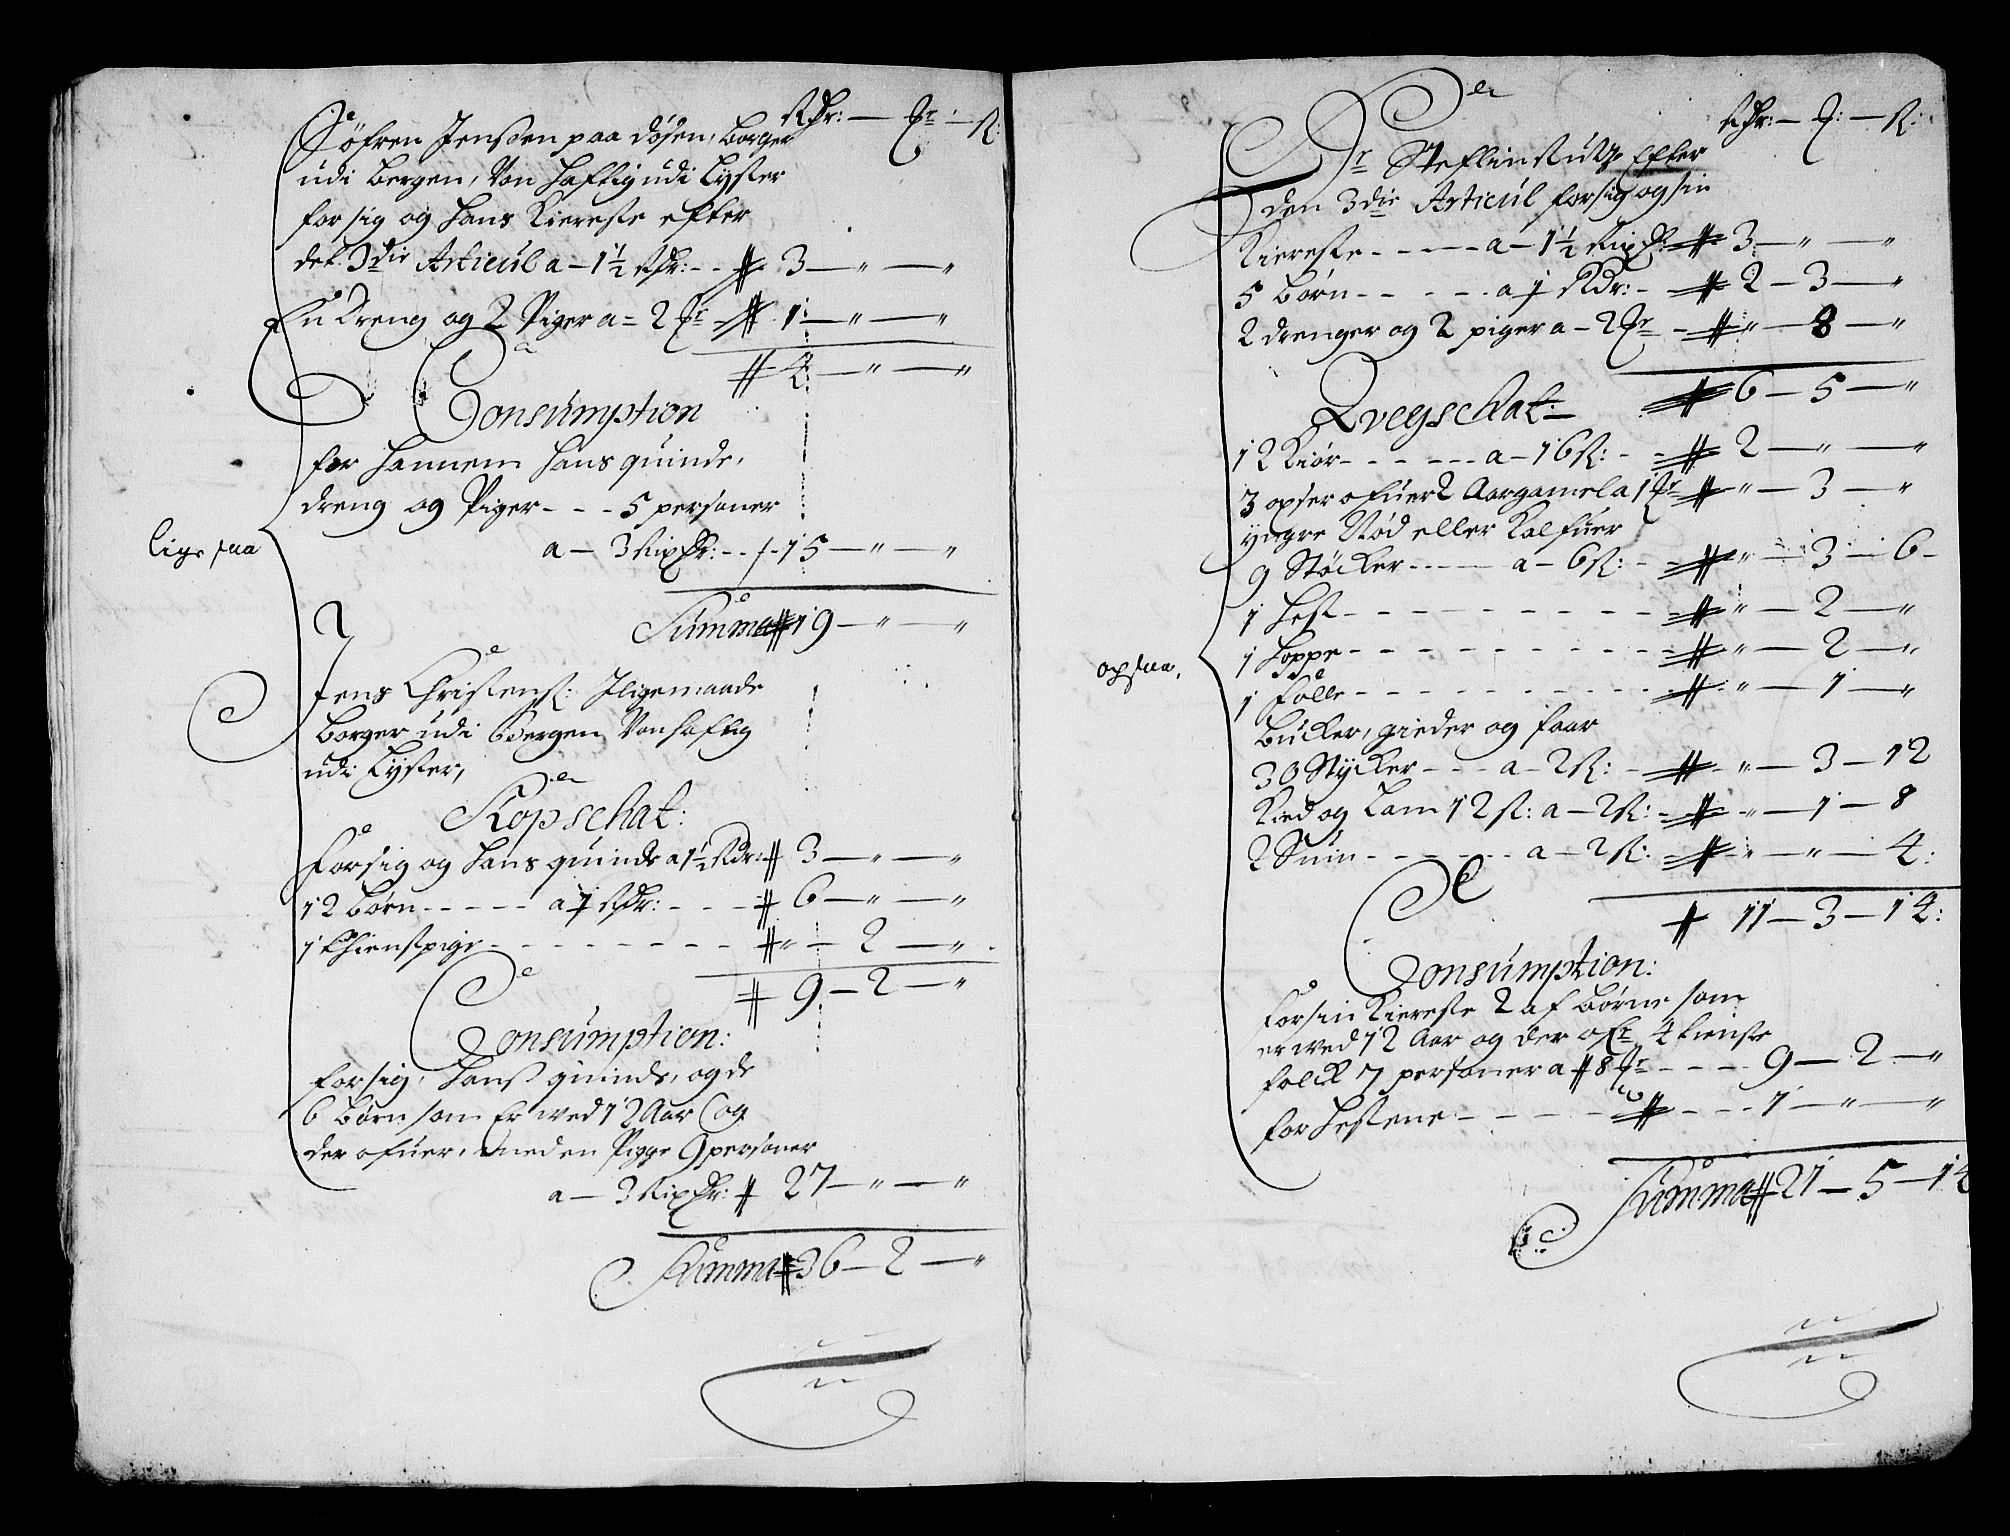 Rdr: — Ort: — ß:
Søfren Jenßen paa Døsen, borger
udi Bergen, Vonhaftig udi Lyster
for sig og Hans Kiereste efter
det 3die Articul a – 1½ Rdr: - - # 3 — " — "
En dreng og 2 Piger a – 2 Ort # 1 — " — "
# 4 — " — "
Consumption
for hannem hans quinde,
dreng og Piger - - - 5 personer
a — 3 Rixdr: - - # 15 — " — "
lige saa
Summa # 19 — " — "
Jens Christens: Iligemaade
Borger udi Bergen Vonhaftig
udi Lyster,
Kopschat:
For sig og hans quinde a 1½ Rdr: # 3 — " — "
12 børn - - - - - a ½ Rdr: - - - # 6 — " — "
1 thienstpige - - - - - - - - # " — 2 — "
# 9 — 2 — "
Consumption:
for sig, hans quinde, og de
6 børn som Er ved 12 Aar og
der ofuer, med en Pigge 9 personer
a — 3 Rixdr: # 27 — " — "
Summa # 36 — 2 — "
Rdr: — O: — ß:
Hr Steflin efter
den 3die Articul for sig og sin
Kiereste - - - - - a – 1½ Rixdr: # 3 — " — "
5 børn - - - - - a ½ Rdr: - # 2 — 3 — "
2 drenger og 2 piger a – 2 Ort - # " — 8 — "
# 6 — 5 — "
Qvegschat:
12 Kiør - - - - - - a – 16 ß: - - # 2 — " — "
3 opser ofuer 2 Aar gamel a 1 Ort # " — 3 — "
yngre Nød eller Kalfuer
9 Støcker - - - - - a – 6 ß: - - # " — 3 — 6 -
1 Hest - - - - - - - - - - # " — 2 — "
1 Hoppe - - - - - - - - - - # " — 2 — "
op saa,
1 Følle - - - - - - - - - - # " — 1 — "
Bucker, gieder og faar
30 Stycker - - - a – 2 ß: - # " — 3 — 12
Kied og Lam 12 st: a – 2 ß: - # " — 1 — 8
2 Suin - - - - - - a – 2 ß: # " — " — 4:
# 11 — 3 — 14:
Consumption:
for sin Kiereste 2 af børne som
er ved 12 Aar og der ofr 4 tienste
folck 7 personer a # 8 Ort - - - - 9 — 2 — "
for Hestene - - - - - # - - - 1 — " — "
Summa # 21 — 5 — 14